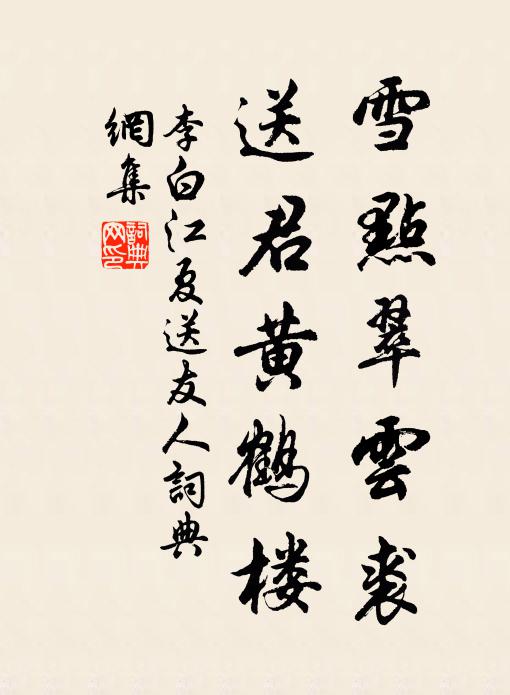 雪點翠雲裘
送君黄鶴楼
李白江夏送友人詞典
網集
詞典
网印